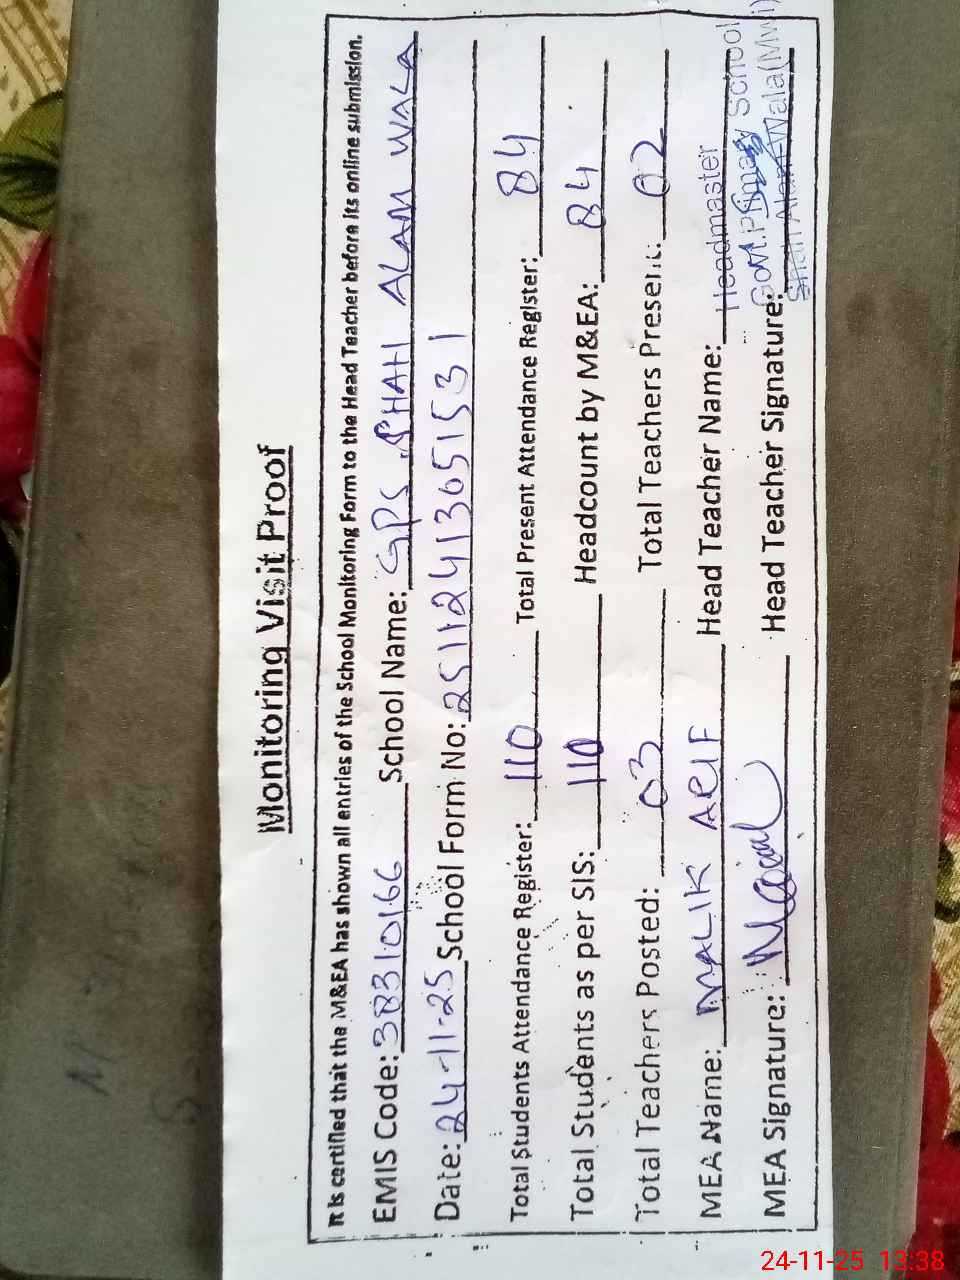 Monitoring Visit Proof
It is certified that the M&EA has shown all entries of the School Monitoring Form to the Head Teacher before its online submission.
EMIS Code: 38310166 School Name: GPS SHAH ALAM WALA
Date: 24-11-25 School Form No: 2511241365153 1
Total Students Attendance Register: 110 Total Present Attendance Register: 84
Total Students as per SIS: 110 Headcount by M&EA: 84
Total Teachers Posted: 03 Total Teachers Present: 02
MEA Name: MALIK ARIF Head Teacher Name: Headmaster
MEA Signature: Head Teacher Signature: Govt. Primary School
Shah Alam Wala (Mwi)
24-11-25 13:38